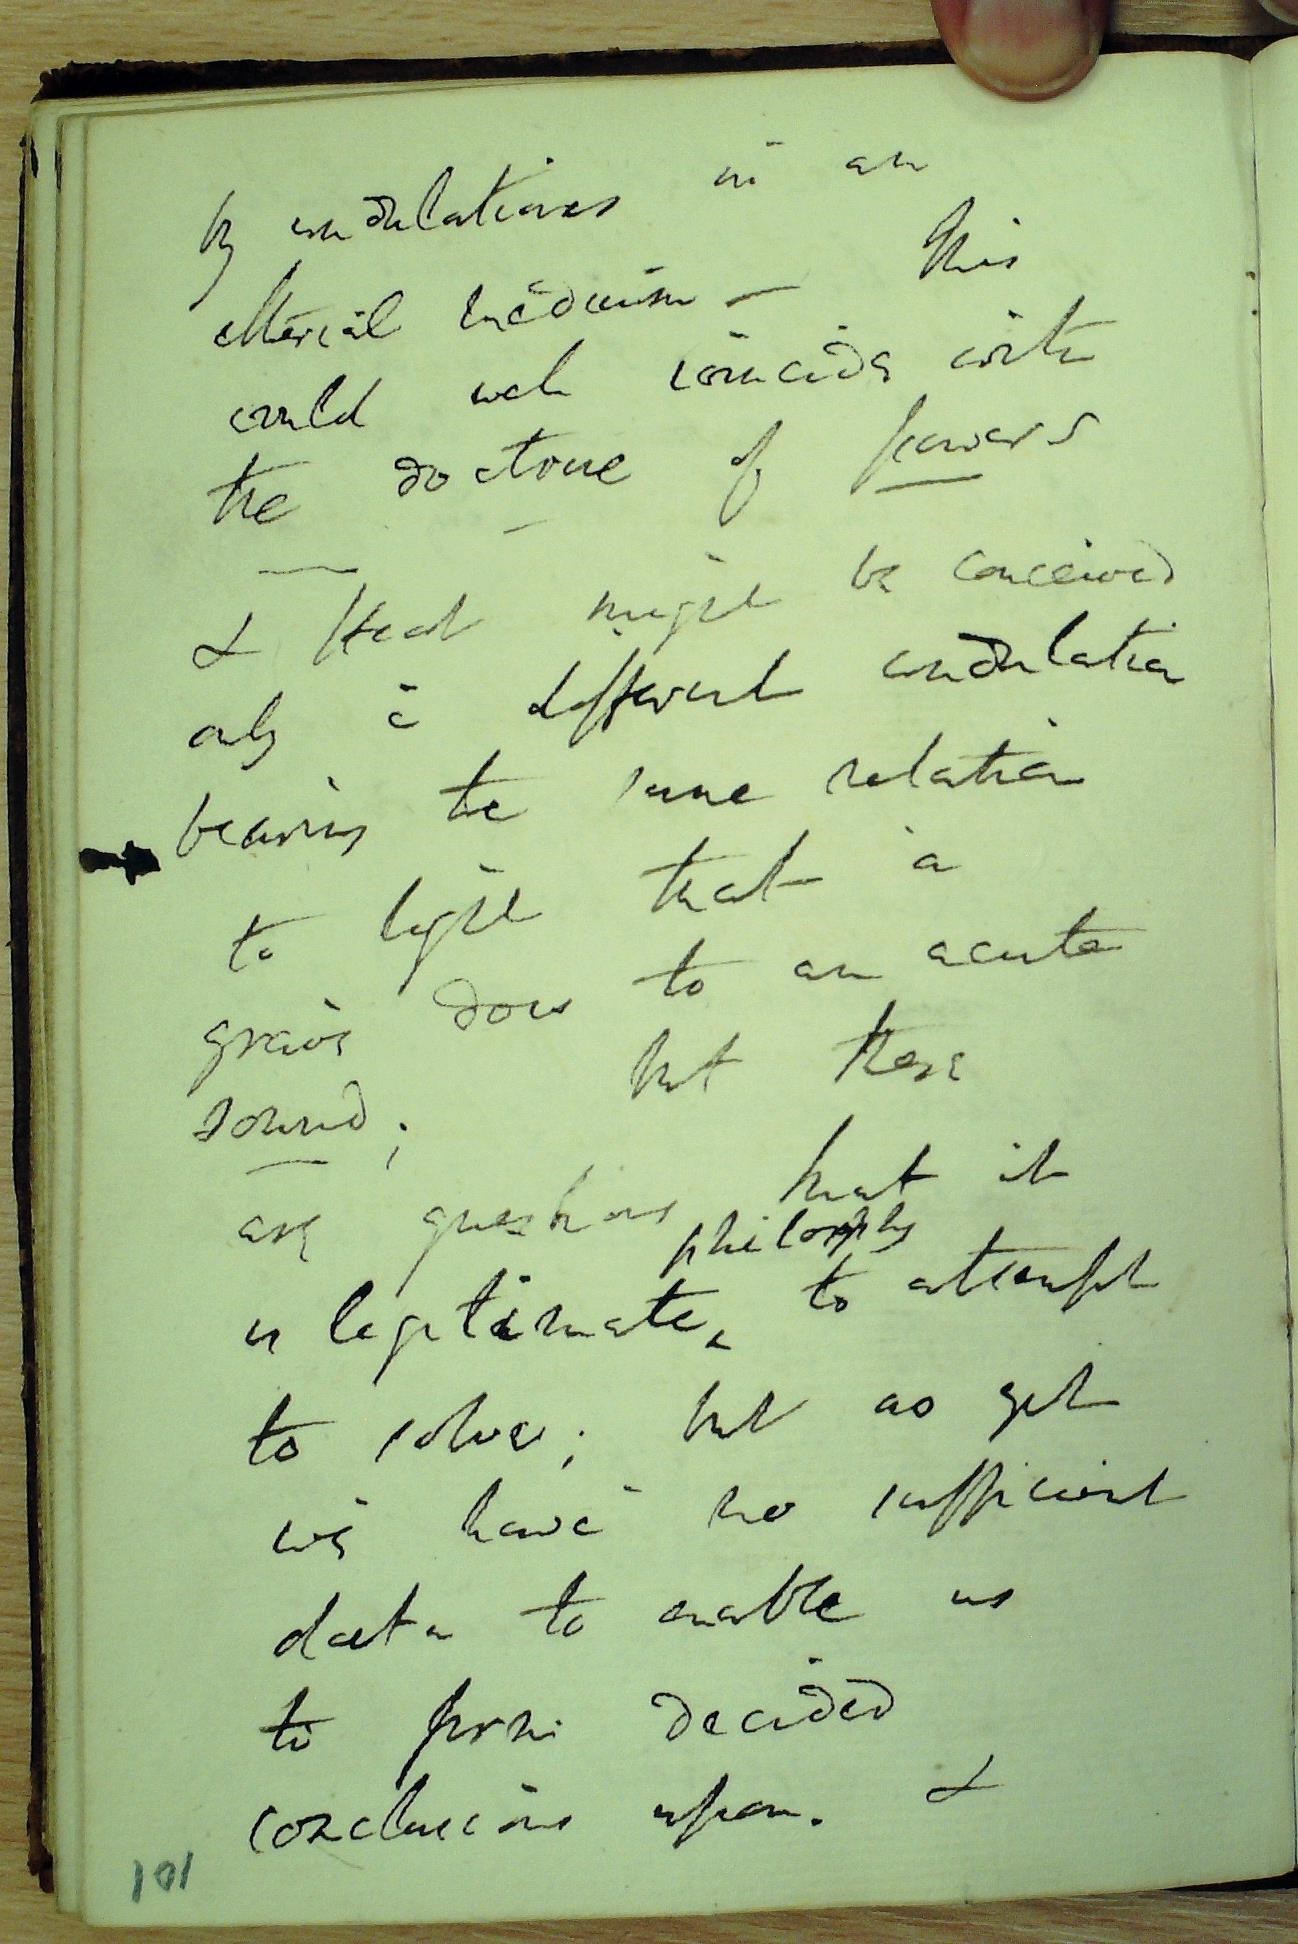 by undulations in an
etherial medium — this
could well coincide with
the doctrine of powers
& Heat might be conceived
only a different undulation
bearing the same relation
to light that a
grave does to an acute
sound; but these
are questions that it
philosophy
is legitimate ‸ to attempt
to solve; but as yet
we have no sufficient
data to enable us
to form decided
conclusions upon. &
101